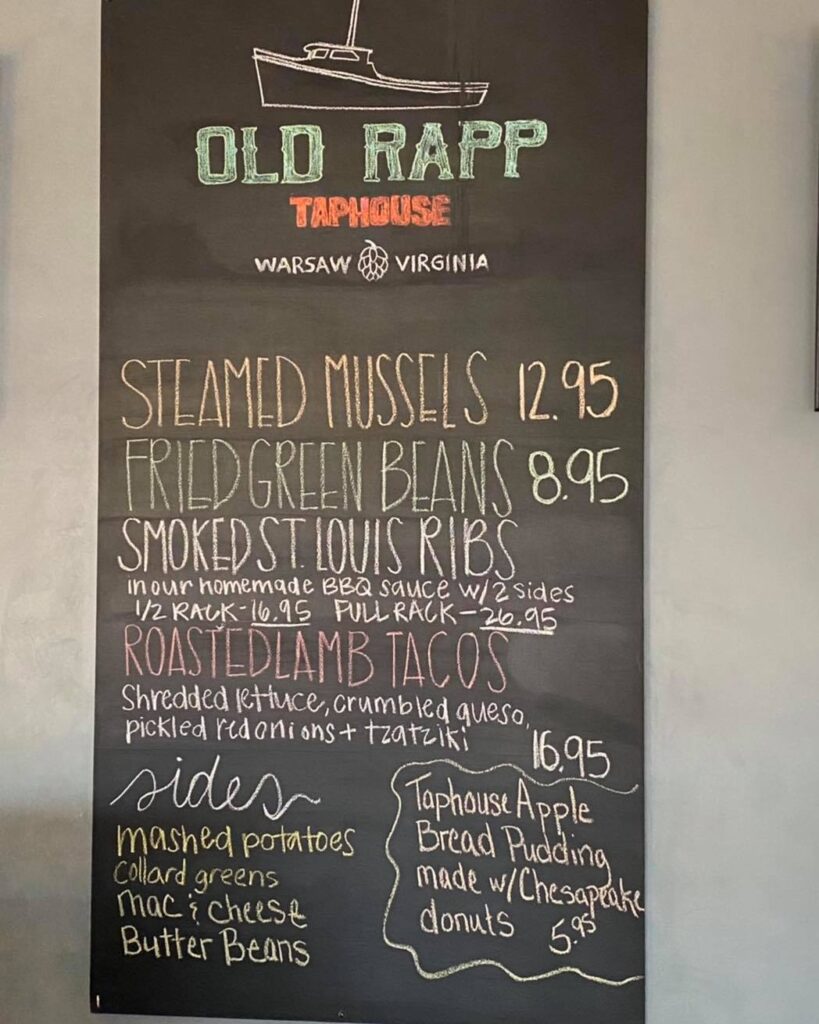 OLD RAPP
TAPHOUSE
WARSAW VIRGINIA
STEAMED MUSSELS 12.95
FRIED GREEN BEANS 8.95
SMOKED ST. LOUIS RIBS
in our homemade BBQ sauce w/2 sides
1/2 RACK-16.95 FULL RACK-26.95
ROASTED LAMB TACOS
Shredded lettuce, crumbled queso,
pickled red onions + tzatziki
16.95
sides
mashed potatoes
collard greens
mac & cheese
Butter Beans
Taphouse Apple
Bread Pudding
made w/Chesapeake
donuts 5.95